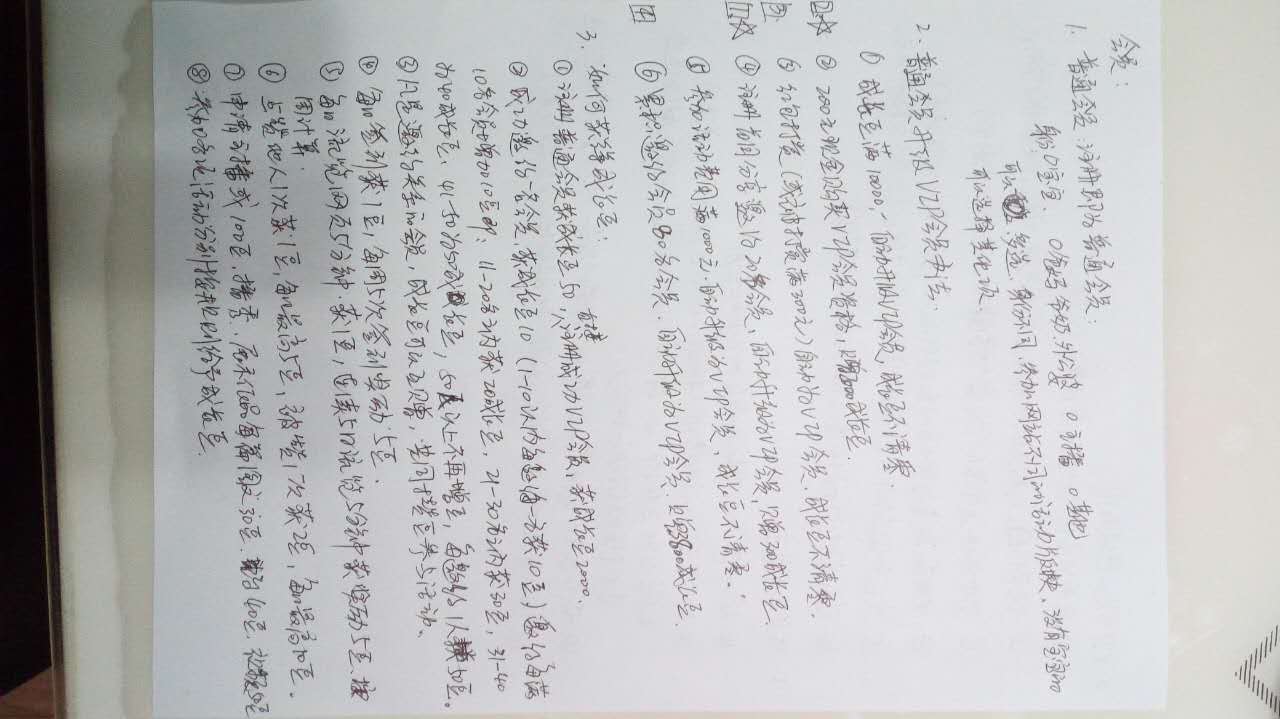 会员:
1. 普通会员:注册即为普通会员:
身份:○宝宝. ○爸妈 爷奶.外公婆 ○主播 ○其他
可以 多选. 身份不同,参加网站不同的活动版块、没有宝宝的
可以选择其他项.
2. 普通会员升级VIP会员办法.
① 成长豆满10000,自动升级VIP会员,成长豆不清零.
[2]☆ ② 200元现金购买VIP会员资格,赠2000成长豆.
[3] ③ 红包打赏(或被打赏满300元)自动为VIP会员.成长豆不清零.
[1]☆ ④ 注册首周分享邀约20名会员,自动升级为VIP会员,赠300成长豆.
⑤ 参加活动费用满1000元.自动升级为VIP会员,成长豆不清零.
[4] ⑥ 累积邀约会员80名会员.自动升级为VIP会员.赠800成长豆.
3. 如何获得成长豆:
① 注册普通会员获成长豆50,直接注册成功VIP会员,获成长豆2000.
② 成功邀约一名会员,获成长豆10(1-10以内每邀约一方获10豆)邀约每满
10名会员增加10豆即:11-20名之内获20成长豆.21-30名之内获30豆,31-40
为40成长豆.41-50为50成长豆,50以上不再增豆,每邀约1人获50豆。
③ 凡是邀约关系的会员,成长豆可以互赠,共同攒豆参与活动。
④ 每日签到获1豆,每周5次签到奖励5豆.
⑤ 每日浏览网页5分钟.获1豆,连续5日浏览5分钟获奖励5豆.按
周计算.
⑥ 点赞他人1次获1豆,每日最高5豆,被赞1次获2豆,每日最高10豆.
⑦ 申请主播或100豆.播秀.展示作品每篇图文30豆. 40豆.
⑧ 参加各项活动分别按规则给予成长豆.